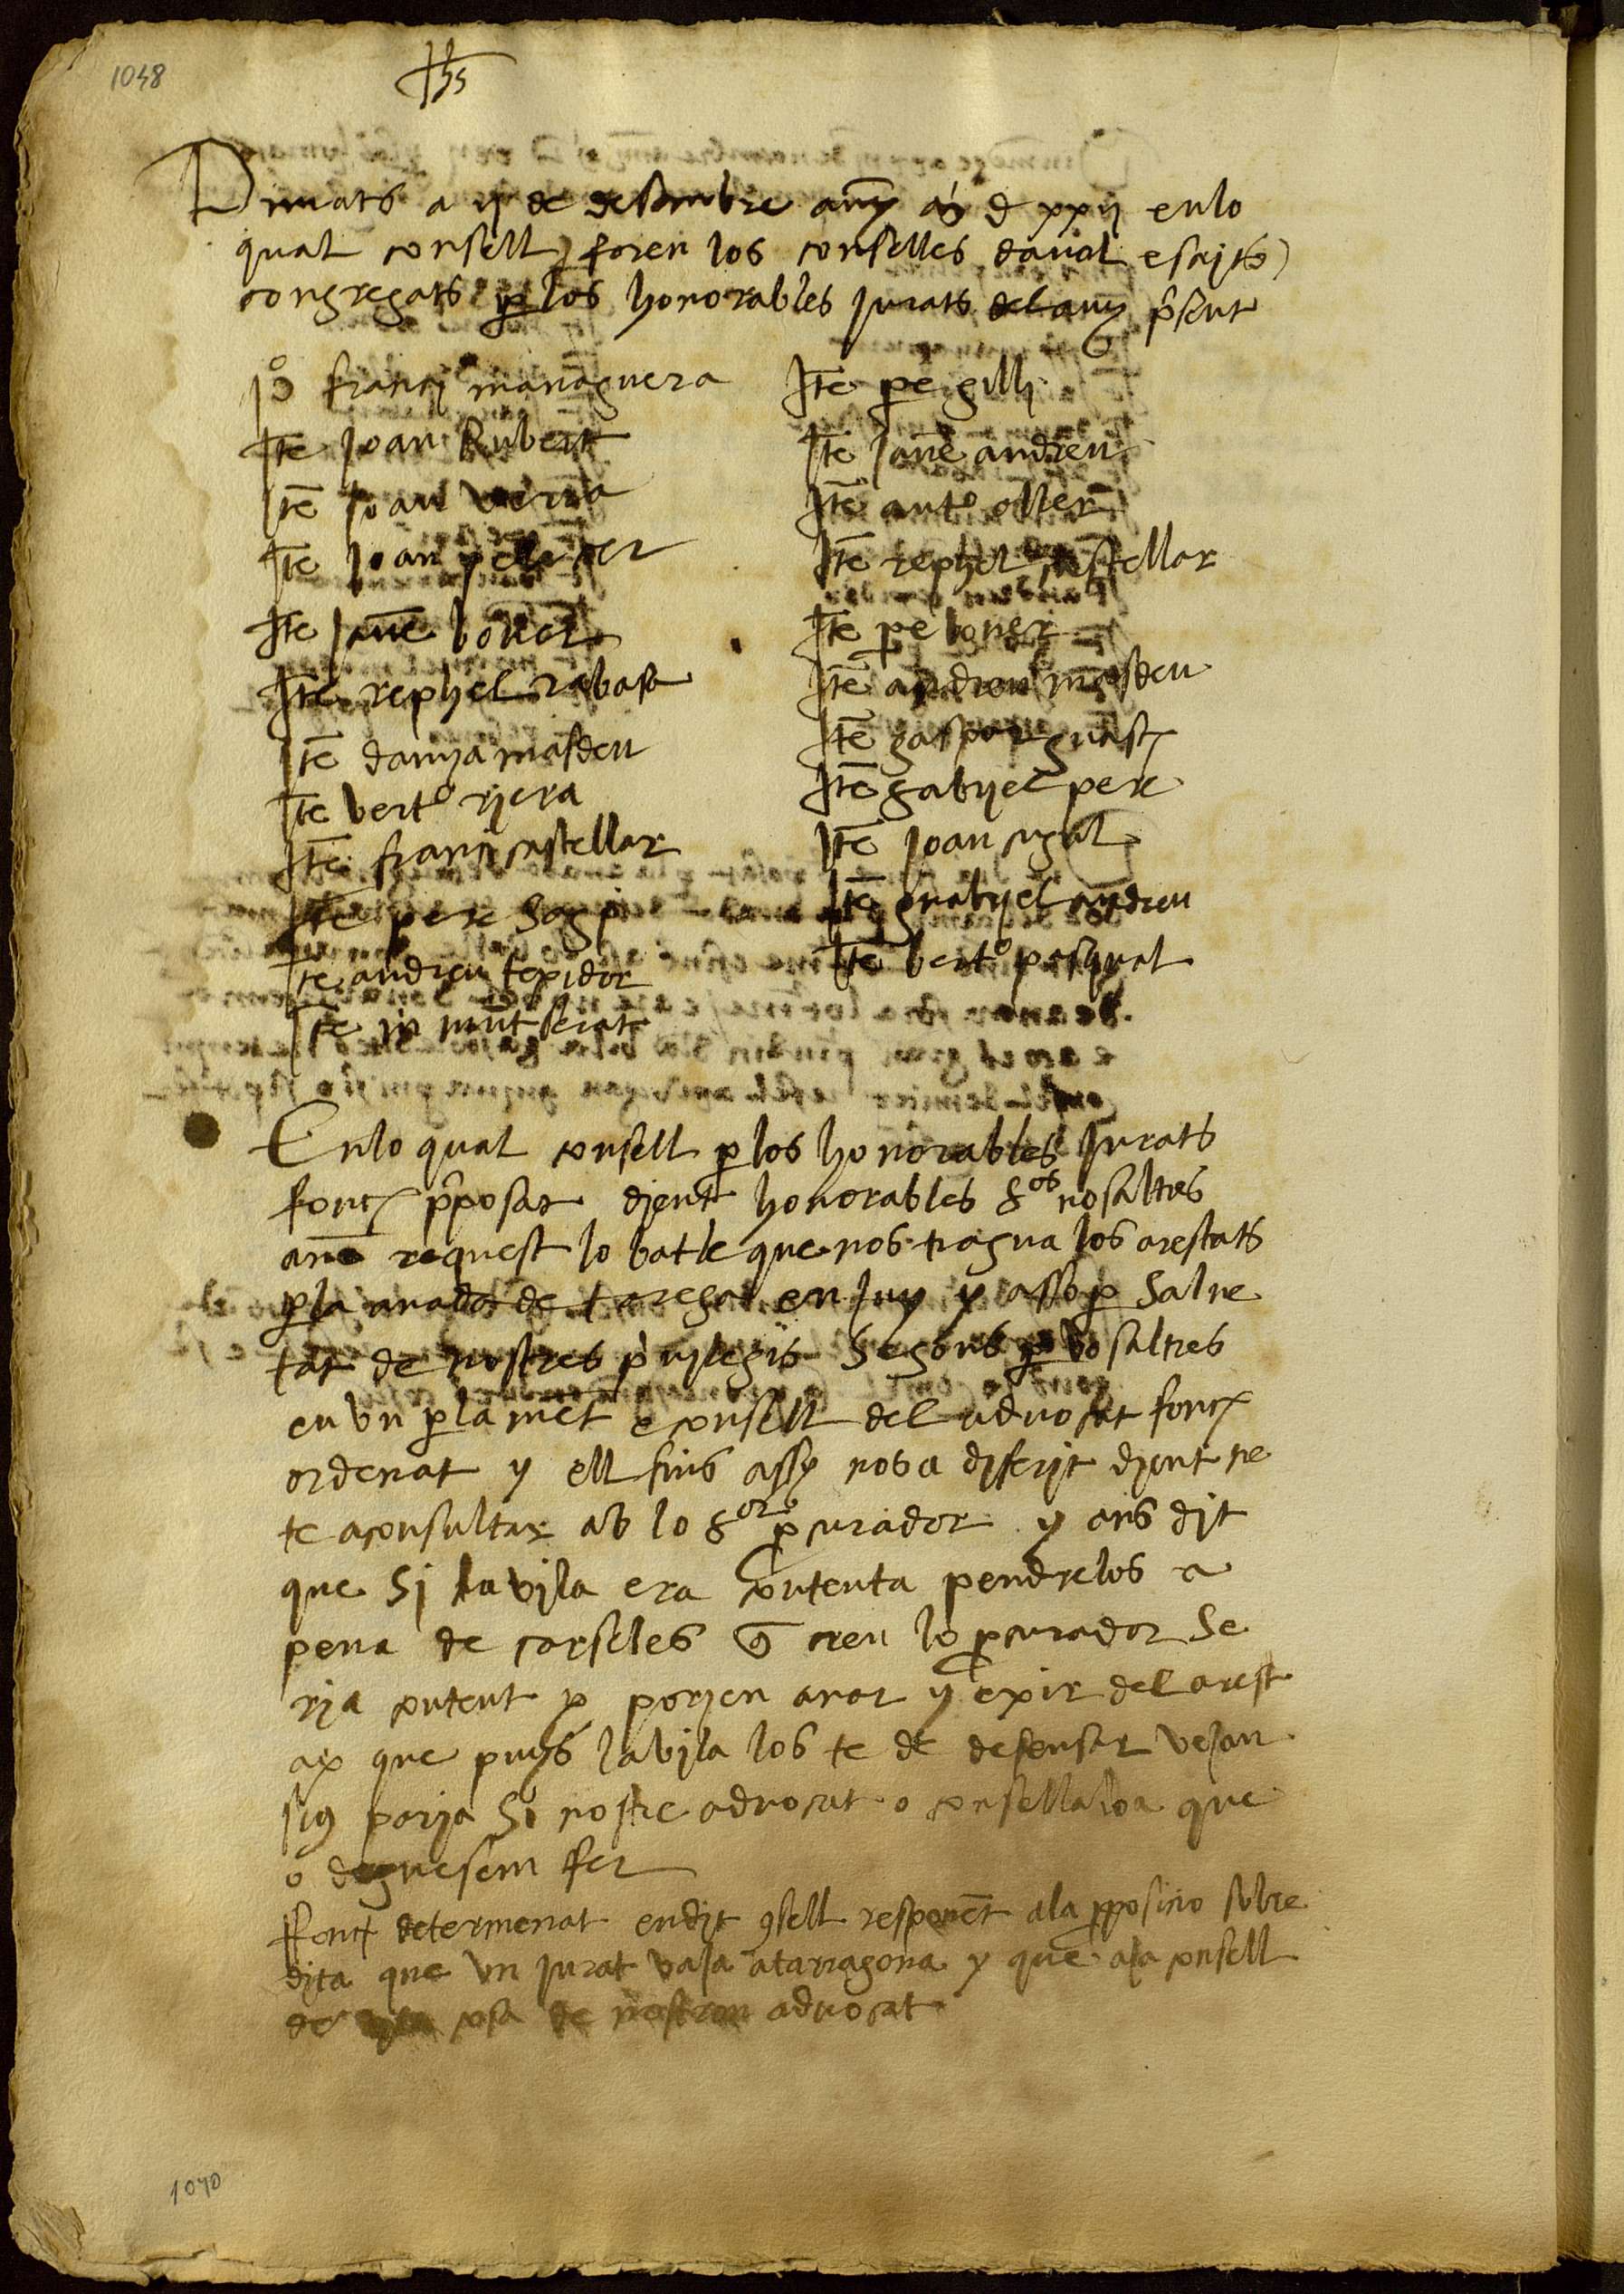 1048
Jhs
Dimats a ij de desembre any M D xxij enlo
qual consell foren los conselles daual escrits
congregats per los honorables jurats del any present
po franci managuera
Ite joan Rubert
Ite joan verna
Ite joan pelliser
Ite jaue boner
Ite rephel rabasa
Ite damya masdeu
Ite berto riera
Ite franci castellar
Ite pere
Ite andreu texidor
Ite muntserat
Ite pe gili
Ite jaue andreu
Ite anto oller
Ite rephel castellar
Ite pe boner
Ite andreu masdeu
Ite gaspar guasch
Ite gabriel pere
Ite joan
Ite guabriel andreu
Ite berto pasqual
Enlo qual consell per los honorables jurats
fonch pposat dient honorables Sos nosaltres
ane request lo batle que nos tragua los arestats
per la anada de tarega en juy y asso per Salue
tat de nostres priuilegis Segons per vosaltres
en vn parlamet e consell del aduocat fonch
ordenat y ell fins assy nos a diferit dient ne
te aconsultar ab lo Sor pcurador y ans dit
que Si la vila era contenta pendrelos a
pena de carseles q creu lo pcurador Se
ria content y porien anar y exir del arest
ax que puys la vila los te de defensar vejan
sius paria Si nostre aduocat o consellaloa que
o deguesem fer
Fonch determenat en dit consell responet ala pposicio sobre
dita que vn jurat vaja a tarragona y que aja consell
de cosa de nostron aduocat
1070